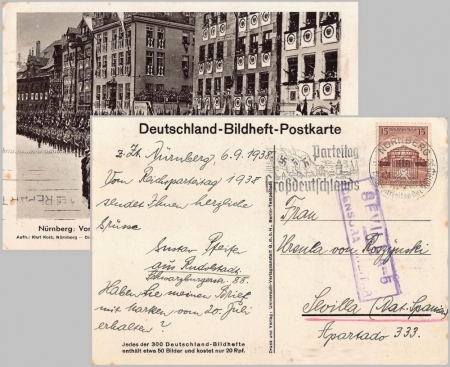 Nürnberg: Vor
Aufn.: Karl Kolt, Nürnberg — Di
Deutschland-Bildheft-Postkarte
z. Zt. Nürnberg 6.9.1938
Vom Reichsparteitag 1938
sendet Ihnen herzliche
Grüsse
Gustav Pfeifer
aus Rudolstadt
Schwarzburgerstr. 88.
Haben Sie meinen Brief
mit Marken vom 20. Juli
erhalten?
Jedes der 300 Deutschland-Bildhefte
enthält etwa 50 Bilder und kostet nur 20 Rpf.
Druck und Verlag: Universum-Verlagsanstalt G.m.b.H., Berlin
Parteitag
Großdeutschlands
15 15
NÜRNBERG
SEVILLA
CENSURA
Frau
Ursula von Roszynski
Sevilla (Nat. Spanien)
Apartado 333.